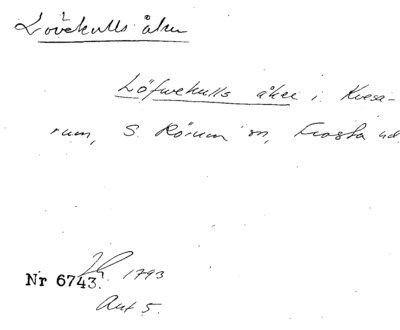 Lövekulls åker
Löfwekulls åker i Kvesa-
rum, S. Rörum sn, Frosta hd.
1793
Nr 6743.
Akt 5.